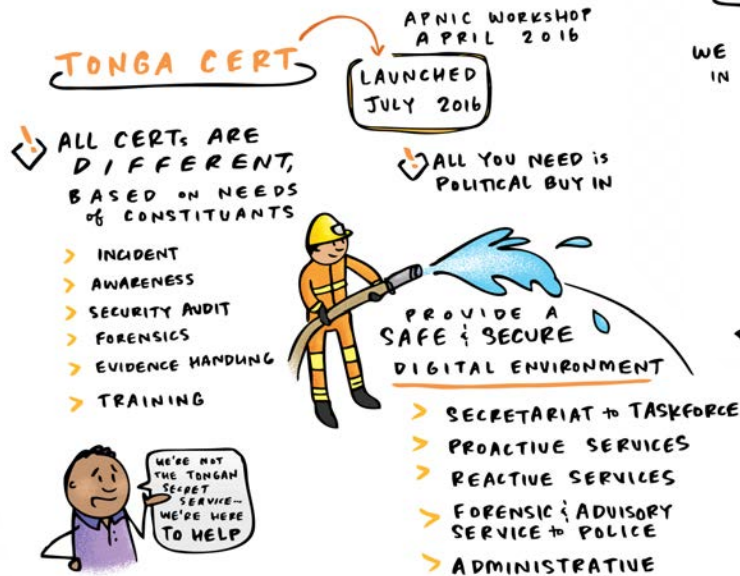 APNIC WORKSHOP
APRIL 2016
TONGA CERT
LAUNCHED
JULY 2016
WE
IN
ALL CERTs ARE
DIFFERENT,
BASED ON NEEDS
of CONSTITUANTS
> INCIDENT
> AWARENESS
> SECURITY AUDIT
> FORENSICS
> EVIDENCE HANDLING
> TRAINING
ALL YOU NEED is
POLITICAL BUY IN
PROVIDE A
SAFE & SECURE
DIGITAL ENVIRONMENT
> SECRETARIAT to TASKFORCE
> PROACTIVE SERVICES
> REACTIVE SERVICES
> FORENSIC & ADVISORY
SERVICE to POLICE
> ADMINISTRATIVE
WE'RE NOT
THE TONGAN
SECRET
SERVICE~
WE'RE HERE
TO HELP